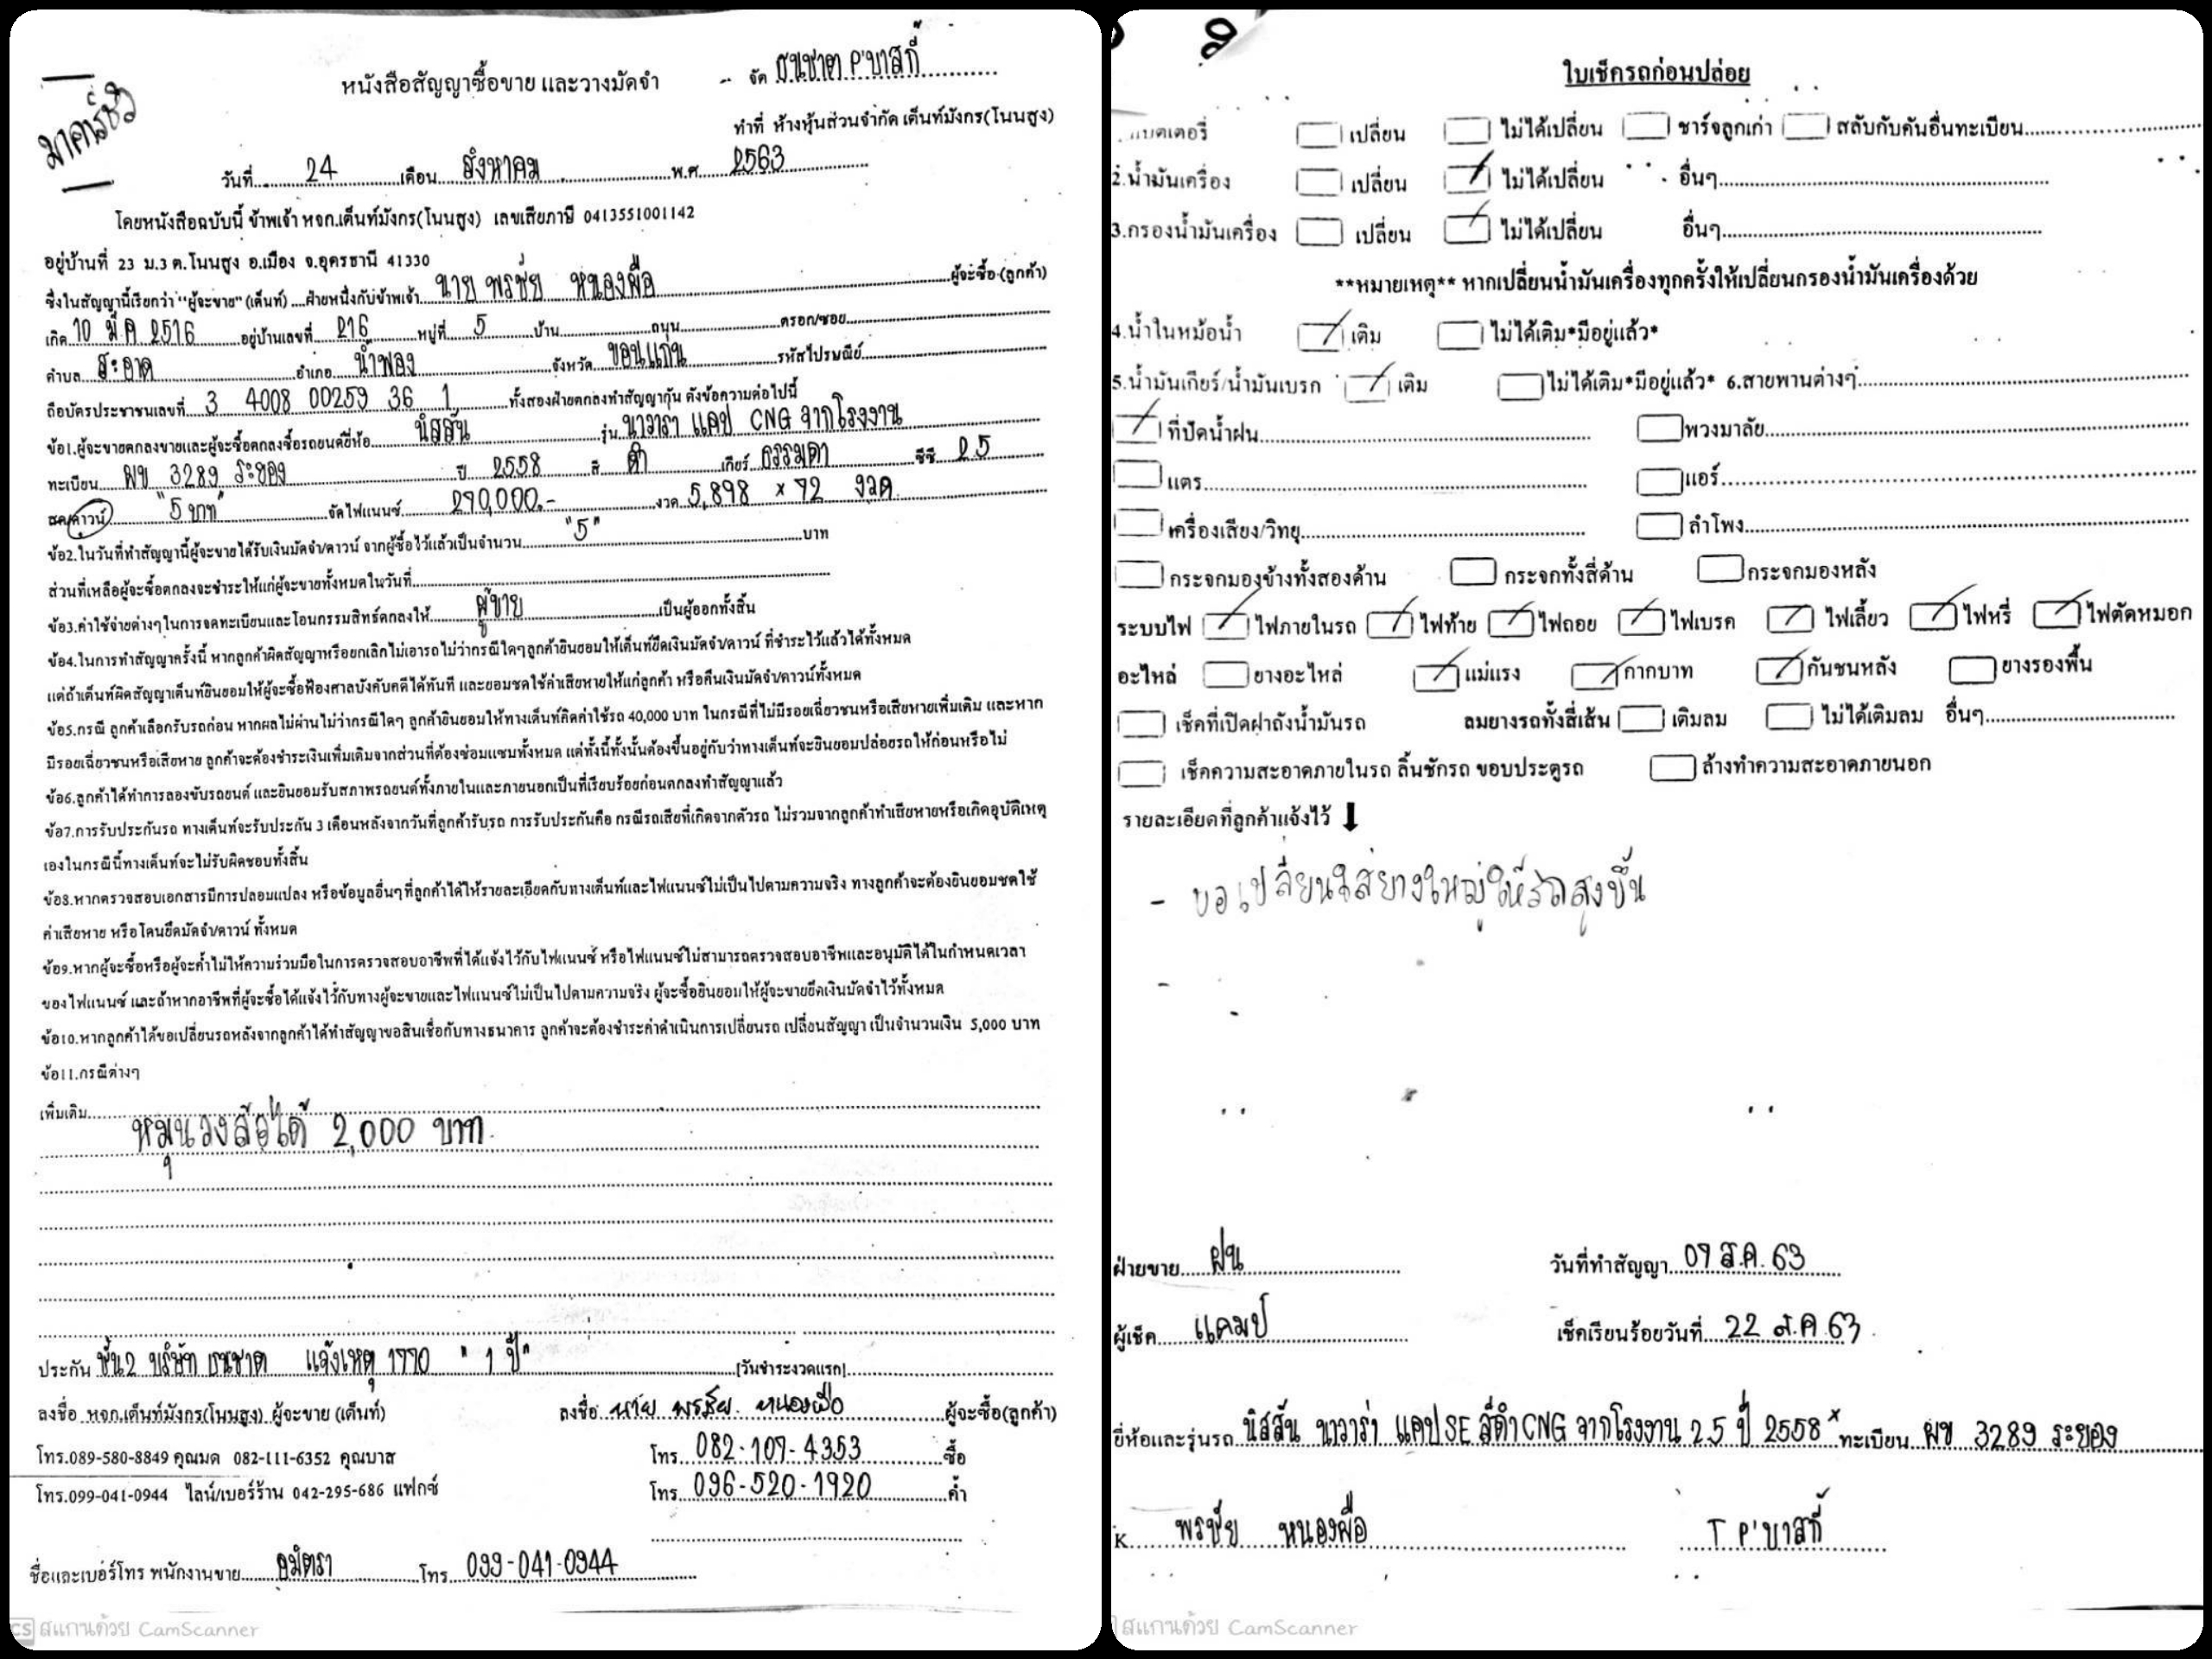 มาคาร์ชัว
หนังสือสัญญาซื้อขาย และวางมัดจำ
จัด ธนชาต P'บาสกี้
ทำที่ ห้างหุ้นส่วนจำกัด เต็นท์มังกร(โนนสูง)
วันที่ 24 เดือน สิงหาคม พ.ศ. 2563
โดยหนังสือฉบับนี้ ข้าพเจ้า หจก.เต็นท์มังกร(โนนสูง) เลขเสียภาษี 0413551001142
อยู่บ้านที่ 23 ม.3 ต.โนนสูง อ.เมือง จ.อุดรธานี 41330
ซึ่งในสัญญานี้เรียกว่า "ผู้จะขาย" (เต็นท์) ....ฝ่ายหนึ่งกับข้าพเจ้า นาย พรชัย หนองผือ ผู้จะซื้อ (ลูกค้า)
เกิด 10 มี.ค 2516 อยู่บ้านเลขที่ 216 หมู่ที่ 5 บ้าน ถนน ตรอก/ซอย
ตำบล สะอาด อำเภอ น้ำพอง จังหวัด ขอนแก่น รหัสไปรษณีย์
ถือบัตรประชาชนเลขที่ 3 4008 00259 36 1 ทั้งสองฝ่ายตกลงทำสัญญากัน ดังข้อความต่อไปนี้
ข้อ1.ผู้จะขายตกลงขายและผู้จะซื้อตกลงซื้อรถยนต์ยี่ห้อ นิสสัน รุ่น นาวาร่า แคป CNG จากโรงงาน
ทะเบียน ผข 3289 ระยอง ปี 2558 สี ดำ เกียร์ ธรรมดา ซีซี 2.5
สด/ดาวน์ "5 บาท" จัดไฟแนนซ์ 290,000.- งวด 5,898 x 72 งวด
ข้อ2.ในวันที่ทำสัญญานี้ผู้จะขายได้รับเงินมัดจำ/ดาวน์ จากผู้ซื้อไว้แล้วเป็นจำนวน "5" บาท
ส่วนที่เหลือผู้จะซื้อตกลงจะชำระให้แก่ผู้จะขายทั้งหมดในวันที่
ข้อ3.ค่าใช้จ่ายต่างๆในการจดทะเบียนและโอนกรรมสิทธิ์ตกลงให้ ผู้ขาย เป็นผู้ออกทั้งสิ้น
ข้อ4.ในการทำสัญญาครั้งนี้ หากลูกค้าผิดสัญญาหรือยกเลิกไม่เอารถ ไม่ว่ากรณีใดๆลูกค้ายินยอมให้เต็นท์ยึดเงินมัดจำ/ดาวน์ ที่ชำระไว้แล้วได้ทั้งหมด
แต่ถ้าเต็นท์ผิดสัญญาเต็นท์ยินยอมให้ผู้จะซื้อฟ้องศาลบังคับคดีได้ทันที และยอมชดใช้ค่าเสียหายให้แก่ลูกค้า หรือคืนเงินมัดจำ/ดาวน์ทั้งหมด
ข้อ5.กรณี ลูกค้าเลือกรับรถก่อน หากผลไม่ผ่านไม่ว่ากรณีใดๆ ลูกค้ายินยอมให้ทางเต็นท์คิดค่าใช้รถ 40,000 บาท ในกรณีที่ไม่มีรอยเฉี่ยวชนหรือเสียหายเพิ่มเติม และหาก
มีรอยเฉี่ยวชนหรือเสียหาย ลูกค้าจะต้องชำระเงินเพิ่มเติมจากส่วนที่ต้องซ่อมแซมทั้งหมด แต่ทั้งนี้ทั้งนั้นต้องขึ้นอยู่กับว่าทางเต็นท์จะยินยอมปล่อยรถให้ก่อนหรือไม่
ข้อ6.ลูกค้าได้ทำการลองขับรถยนต์ และยินยอมรับสภาพรถยนต์ทั้งภายในและภายนอกเป็นที่เรียบร้อยก่อนตกลงทำสัญญาแล้ว
ข้อ7.การรับประกันรถ ทางเต็นท์จะรับประกัน 3 เดือนหลังจากวันที่ลูกค้ารับรถ การรับประกันคือ กรณีรถเสียที่เกิดจากตัวรถ ไม่รวมจากลูกค้าทำเสียหายหรือเกิดอุบัติเหตุ
เองในกรณีนี้ทางเต็นท์จะไม่รับผิดชอบทั้งสิ้น
ข้อ8.หากตรวจสอบเอกสารมีการปลอมแปลง หรือข้อมูลอื่นๆที่ลูกค้าได้ให้รายละเอียดกับทางเต็นท์และไฟแนนซ์ไม่เป็นไปตามความจริง ทางลูกค้าจะต้องยินยอมชดใช้
ค่าเสียหาย หรือโดนยึดมัดจำ/ดาวน์ ทั้งหมด
ข้อ9.หากผู้จะซื้อหรือผู้จะค้ำไม่ให้ความร่วมมือในการตรวจสอบอาชีพที่ได้แจ้งไว้กับไฟแนนซ์ หรือไฟแนนซ์ไม่สามารถตรวจสอบอาชีพและอนุมัติได้ในกำหนดเวลา
ของไฟแนนซ์ และถ้าหากอาชีพที่ผู้จะซื้อได้แจ้งไว้กับทางผู้จะขายและไฟแนนซ์ไม่เป็นไปตามความจริง ผู้จะซื้อยินยอมให้ผู้จะขายยึดเงินมัดจำไว้ทั้งหมด
ข้อ10.หากลูกค้าได้ขอเปลี่ยนรถหลังจากลูกค้าได้ทำสัญญาขอสินเชื่อกับทางธนาคาร ลูกค้าจะต้องชำระค่าดำเนินการเปลี่ยนรถ เปลี่ยนสัญญา เป็นจำนวนเงิน 5,000 บาท
ข้อ11.กรณีต่างๆ
เพิ่มเติม
หมุนวงล้อได้ 2,000 บาท
ประกัน ชั้น2 บริษัท ธนชาต แจ้งเหตุ 1770 "1 ปี" [วันชำระงวดแรก]
ลงชื่อ หจก.เต็นท์มังกร(โนนสูง) ผู้จะขาย (เต็นท์) ลงชื่อ นาย พรชัย หนองผือ ผู้จะซื้อ(ลูกค้า)
โทร.089-580-8849 คุณมด 082-111-6352 คุณบาส โทร. 082-107-4353 ซื้อ
โทร.099-041-0944 ไลน์/เบอร์ร้าน 042-295-686 แฟกซ์ โทร. 096-520-1920 ค้ำ
ชื่อและเบอร์โทร พนักงานขาย อมิตรา โทร. 099-041-0944
CS สแกนด้วย CamScanner
ใบเช็ครถก่อนปล่อย
แบตเตอรี่ เปลี่ยน ไม่ได้เปลี่ยน ชาร์จลูกเก่า สลับกับคันอื่นทะเบียน
2.น้ำมันเครื่อง เปลี่ยน ไม่ได้เปลี่ยน อื่นๆ
3.กรองน้ำมันเครื่อง เปลี่ยน ไม่ได้เปลี่ยน อื่นๆ
**หมายเหตุ** หากเปลี่ยนน้ำมันเครื่องทุกครั้งให้เปลี่ยนกรองน้ำมันเครื่องด้วย
4.น้ำในหม้อน้ำ เติม ไม่ได้เติม*มีอยู่แล้ว*
5.น้ำมันเกียร์/น้ำมันเบรก เติม ไม่ได้เติม*มีอยู่แล้ว* 6.สายพานต่างๆ
ที่ปัดน้ำฝน พวงมาลัย
แตร แอร์
เครื่องเสียง/วิทยุ ลำโพง
กระจกมองข้างทั้งสองด้าน กระจกทั้งสี่ด้าน กระจกมองหลัง
ระบบไฟ ไฟภายในรถ ไฟท้าย ไฟถอย ไฟเบรค ไฟเลี้ยว ไฟหรี่ ไฟตัดหมอก
อะไหล่ ยางอะไหล่ แม่แรง กากบาท กันชนหลัง ยางรองพื้น
เช็คที่เปิดฝาถังน้ำมันรถ ลมยางรถทั้งสี่เส้น เติมลม ไม่ได้เติมลม อื่นๆ
เช็คความสะอาดภายในรถ ลิ้นชักรถ ขอบประตูรถ ล้างทำความสะอาดภายนอก
รายละเอียดที่ลูกค้าแจ้งไว้
- ขอเปลี่ยนใส่ยางใหญ่ให้รถสูงขึ้น
ฝ่ายขาย ฝน วันที่ทำสัญญา 07 ส.ค. 63
ผู้เช็ค แคมป์ เช็คเรียบร้อยวันที่ 22 ส.ค 63
ยี่ห้อและรุ่นรถ นิสสัน นาวาร่า แคป SE สีดำ CNG จากโรงงาน 2.5 ปี 2558 ทะเบียน ผข 3289 ระยอง
K พรชัย หนองผือ T P'บาสกี้
สแกนด้วย CamScanner